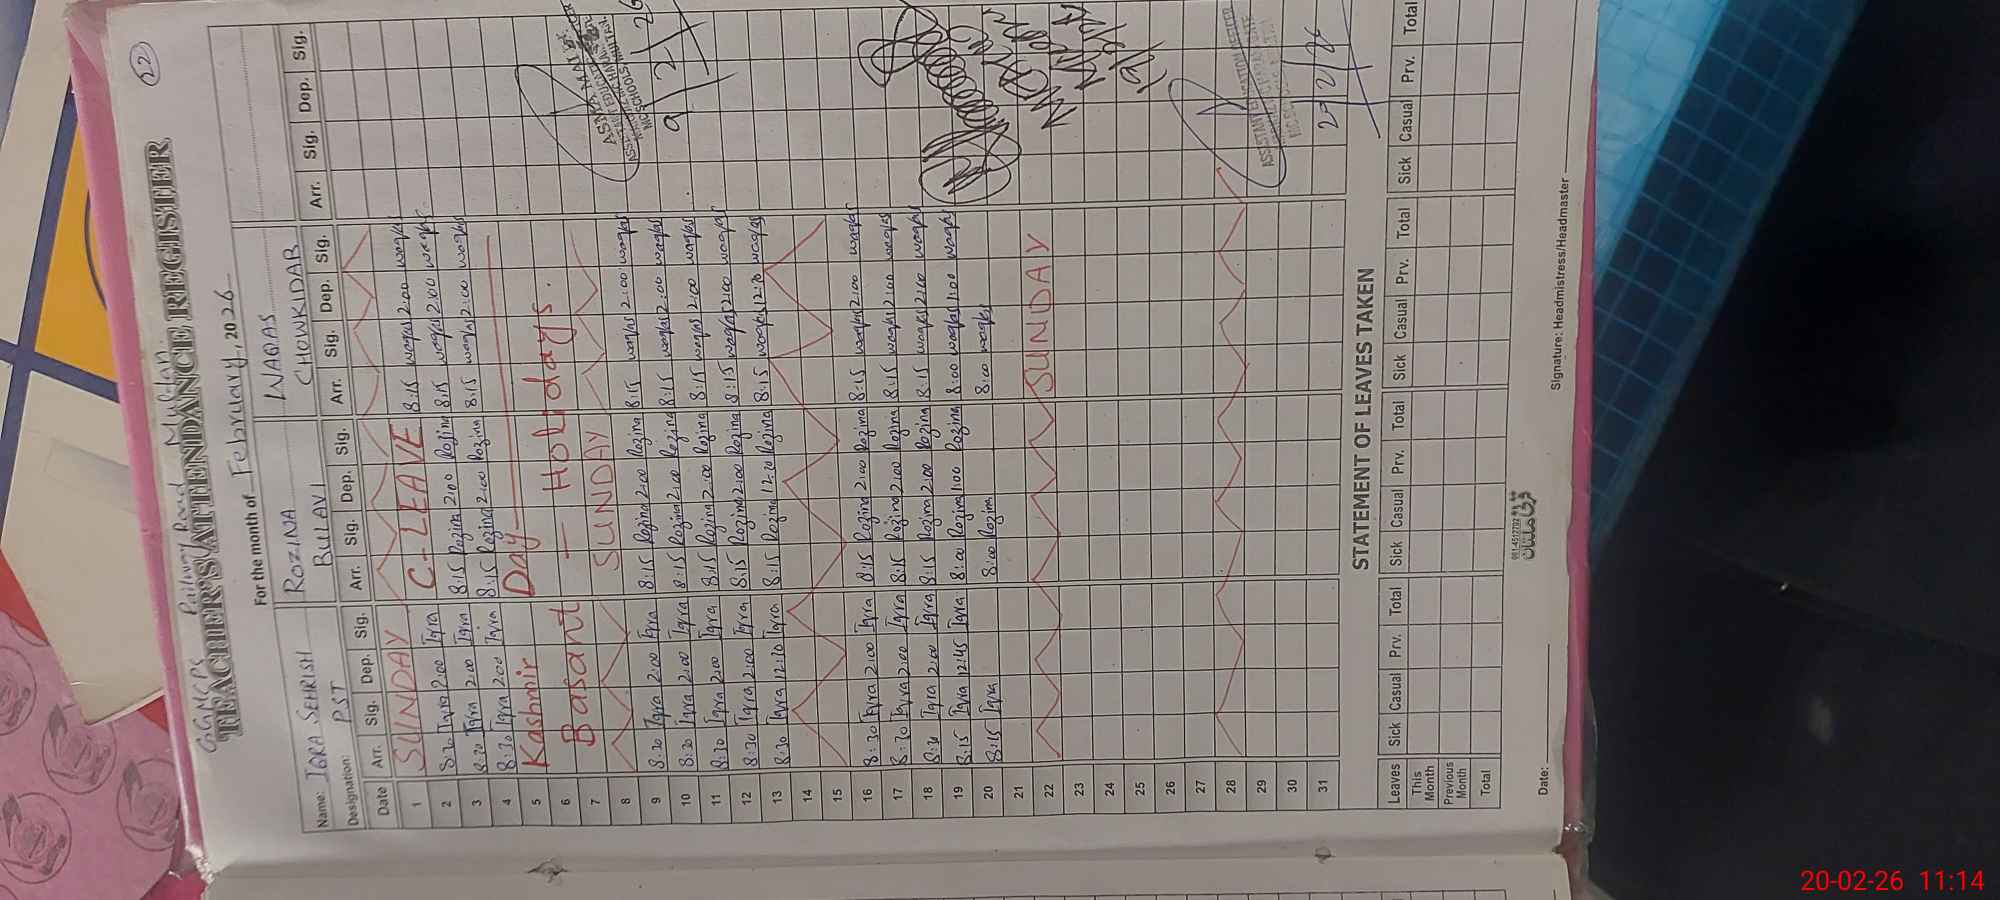 22
GGMCPS Railway Road Multan.
TEACHER'S ATTENDANCE REGISTER
For the month of February, 2026
Name: IQRA SEHRISH ROZINA WAQAS
Designation: PST BULAVI CHOWKIDAR
Date Arr. Sig. Dep. Sig. Arr. Sig. Dep. Sig. Arr. Sig. Dep. Sig. Arr. Sig. Dep. Sig.
1 SUNDAY C-LEAVE 8:15 waqas 2:00 waqas
2 8:30 Iqra 2:00 Iqra 8:15 Rozina 2:00 Rozina 8:15 waqas 2:00 waqas
3 8:30 Iqra 2:00 Iqra 8:15 Rozina 2:00 Rozina 8:15 waqas 2:00 waqas
4 8:30 Iqra 2:00 Iqra
5 Kashmir Day
6 Basant — Holidays.
7 SUNDAY
8 8:15 waqas 2:00 waqas
9 8:30 Iqra 2:00 Iqra 8:15 Rozina 2:00 Rozina 8:15 waqas 2:00 waqas
10 8:30 Iqra 2:00 Iqra 8:15 Rozina 2:00 Rozina 8:15 waqas 2:00 waqas
11 8:30 Iqra 2:00 Iqra 8:15 Rozina 2:00 Rozina 8:15 waqas 2:00 waqas
12 8:30 Iqra 2:00 Iqra 8:15 Rozina 2:00 Rozina 8:15 waqas 12:30 waqas
13 8:30 Iqra 12:30 Iqra 8:15 Rozina 12:30 Rozina
14
15
16 8:30 Iqra 2:00 Iqra 8:15 Rozina 2:00 Rozina 8:15 waqas 2:00 waqas
17 8:30 Iqra 2:00 Iqra 8:15 Rozina 2:00 Rozina 8:15 waqas 2:00 waqas
18 8:30 Iqra 2:00 Iqra 8:15 Rozina 2:00 Rozina 8:15 waqas 2:00 waqas
19 8:15 Iqra 12:45 Iqra 8:00 Rozina 1:00 Rozina 8:00 waqas 1:00 waqas
20 8:15 Iqra 8:00 Rozina 8:00 waqas
21
22 SUNDAY
23
24
25
26
27
28
29
30
31
9/2/26
STATEMENT OF LEAVES TAKEN
Leaves Sick Casual Prv. Total Sick Casual Prv. Total Sick Casual Prv. Total Sick Casual Prv. Total
This Month
Previous Month
Total
Date: Signature: Headmistress/Headmaster
20-02-26 11:14